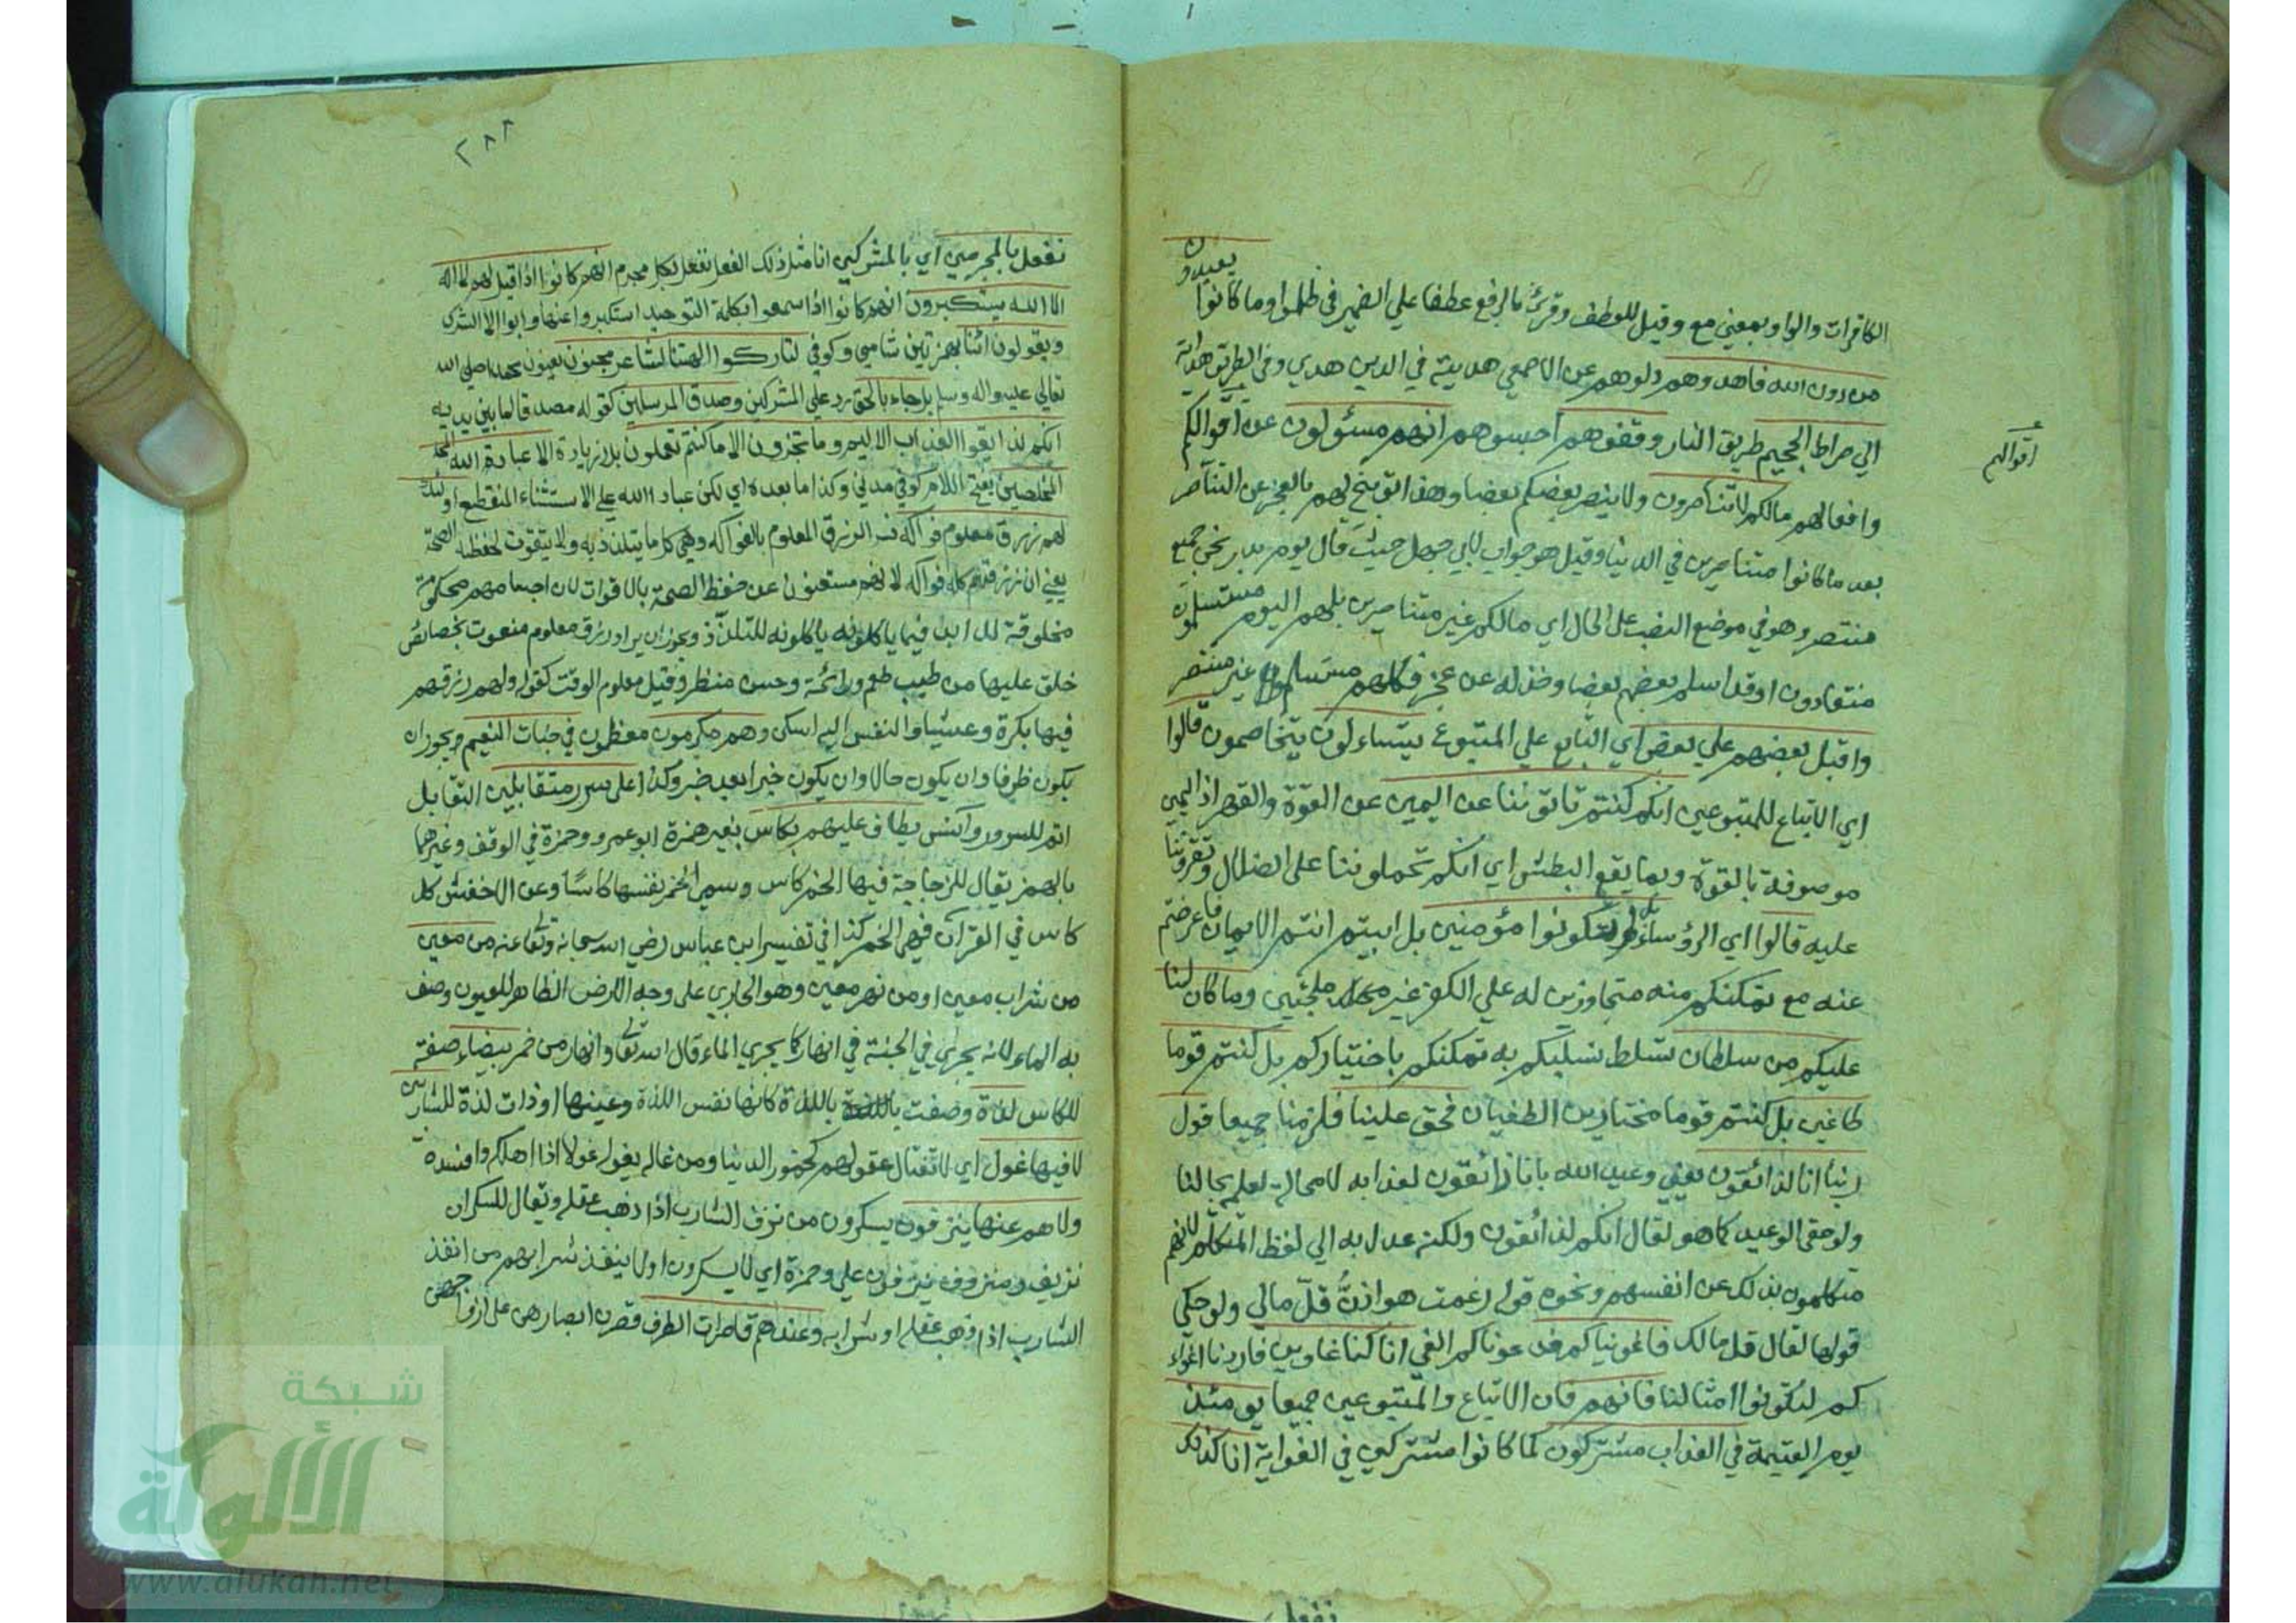 الكافرات والواو بمعني مع وقيل للعطف وقرئ بالرفع عطفا علي الضمير في ظلموا وما كانوا يعبدون
من دون الله فاهدوهم دلوهم عن الاصمعي هديته في الدين هدي وفي الطريق هداية
الي صراط الجحيم طريق النار وقفوهم احبسوهم انهم مسئولون عن اقوالكم
اقوالهم
وافعالهم مالكم لا تناصرون ولا ينصر بعضكم بعضا وهذا توبيخ لهم بالعجز عن التناصر
بعد ما كانوا متناصرين في الدنيا وقيل هو جواب لابي جهل حيث قال يوم بدر نحن جميع
منتصر وهو في موضع النصب على الحال اي مالكم غير متناصرين بل هم اليوم مستسلمون
منقادون او قد اسلم بعضهم بعضا وخذله عن عجز فكلهم مستسلم غير منتصر
واقبل بعضهم علي بعض اي التابع علي المتبوع يتساءلون يتخاصمون قالوا
اي الاتباع للمتبوعين انكم كنتم تاتوننا عن اليمين عن القوة والقهر اذ اليمين
موصوفة بالقوة وبها يقع البطش اي انكم تحملوننا على الضلال وتقروننا
عليه قالوا اي الرؤساء بل لم تكونوا مؤمنين بل ابيتم انتم الايمان فاعرضتم
عنه مع تمكنكم منه متجاوزين له علي الكفر غير ملجئين وما كان لنا
عليكم من سلطان تسلط نسلبكم به تمكنكم باختياركم بل كنتم قوما
طاغين بل كنتم قوما مختارين الطغيان فحق علينا فلزمنا جميعا قول
ربنا انا لذائقون يعني وعيد الله بانا ذائقون لعذابه لا محالة لعلمه بحالنا
ولو حقى الوعيد كما هو لقال انكم لذائقون ولكنه عدل به الي لفظ المتكلم لانهم
متكلمون بذلك عن انفسهم ونحوه قوله زعمت هوازن قل مالي ولو حكي
قولها لقال قل مالك فاغويناكم فدعوناكم الغي انا كنا غاوين فاردنا اغواء
كم لتكونوا امثالنا فانهم فان الاتباع والمتبوعين جميعا يومئذ
يوم القيمة في العذاب مشتركون كما كانوا مشتركين في الغواية انا كذلك
نفعل
٢٨٨
نفعل بالمجرمين اي بالمشركين انا مثل ذلك الفعل نفعل بكل مجرم انهم كانوا اذا قيل لهم لا اله
الا الله يستكبرون انهم كانوا اذا سمعوا بكلمة التوحيد استكبروا عنها وابوا الا الشرك
ويقولون ائنا بهمزتين شامي وكوفي لتاركوا الهتنا لشاعر مجنون يعنون محمدا صلي الله
تعالي عليه واله وسلم بل جاء بالحق رد علي المشركين وصدق المرسلين كقوله مصدقا لما بين يديه
انكم لذايقوا العذاب الاليم وما تجزون الا ما كنتم تعملون بلا زيادة الا عباد الله
المخلصين بفتح اللام كوفي مدني وكذا ما بعده اي لكن عباد الله علي الاستثناء المنقطع اولئك
لهم رزق معلوم فواكه فسر الرزق المعلوم بالفواكه وهي كل ما يتلذذ به ولا يتقوت لحفظ الصحة
يعني ان رزقهم كله فواكه لانهم مستغنون عن حفظ الصحة بالاقوات لان اجسامهم محكومة
مخلوقة للابد فيما ياكلونه ياكلونه للتلذذ ويجوز ان يراد رزق معلوم منعوت بخصائص
خلق عليها من طيب طعم ورائحة وحسن منظر وقيل معلوم الوقت كقوله ولهم رزقهم
فيها بكرة وعشيا والنفس اليه اسكن وهم مكرمون معظمون في جنات النعيم ويجوز ان
يكون ظرفا وان يكون حالا وان يكون خبرا بعد خبر وكذا على سرر متقابلين التقابل
اتم للسرور وآنس يطاف عليهم بكاس بغير همزة ابو عمرو وحمزة في الوقف وغيرهما
بالهمز يقال للزجاجة فيها الخمر كاس وسمي الخمر نفسها كاسا وعن الاخفش كل
كاس في القرآن فهي الخمر كذا في تفسير ابن عباس رضي الله سبحانه وتعا عنه من معين
من شراب معين او من نهر معين وهو الجاري على وجه الارض الظاهر للعيون وصف
به الماء لانه يجري في الجنة في انهار كما يجري الماء قال الله تعا وانهار من خمر بيضاء صفة
للكاس لذة وصفت باللذة كانها نفس اللذة وعينها او ذات لذة للشاربين
لا فيها غول اي لا تغتال عقولهم كخمور الدنيا ومن غاله يغوله غولا اذا اهلكه وافسده
ولا هم عنها ينزفون يسكرون من نزف الشارب اذا ذهب عقله ويقال للسكران
نزيف ومنزوف ينزفون علي وحمزة اي لا يسكرون او لا ينفذ شرابهم من انفذ
الشارب اذا ذهب عقله او شرابه وعندهم قاصرات الطرف قصرن ابصارهن على ازواجهن
شبكة
الألوكة
www.alukah.net